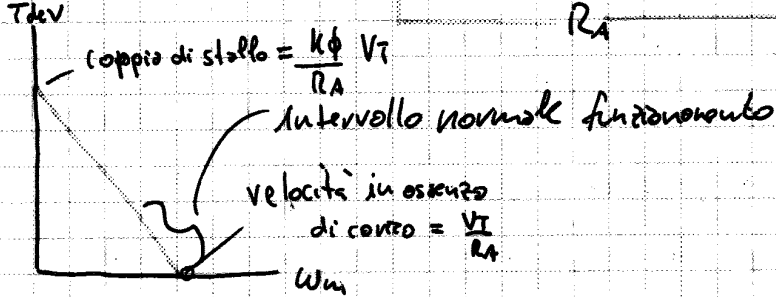 Tdev
RA
coppia di stallo = Kϕ/RA VT
intervallo normale funzionamento
velocità in assenza
di carico = VT/RA
ωm